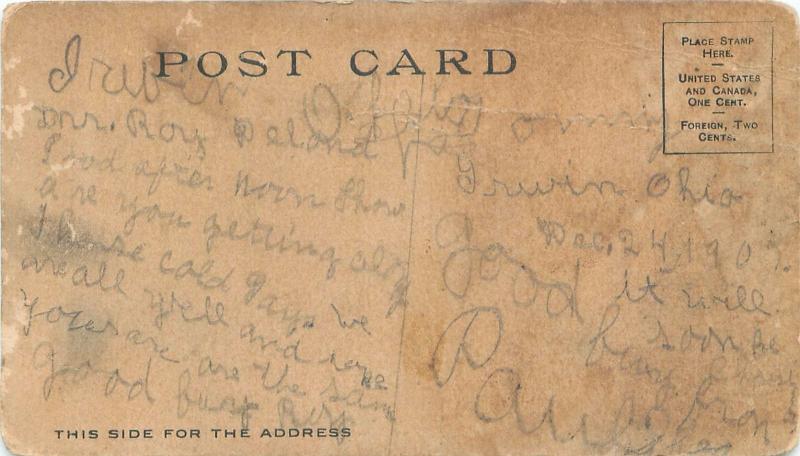 POST CARD
PLACE STAMP
HERE.
UNITED STATES
AND CANADA,
ONE CENT.
FOREIGN, TWO
CENTS.
Irwin Ohio
Mr. Roy Deland
Good after noon Ghow
are you getting along
these cold days. We
are all well and hope
you are are the same
Good buy Roy
Irwin Ohio
Dec, 24, 190
it will
soon be
Good
buy
THIS SIDE FOR THE ADDRESS